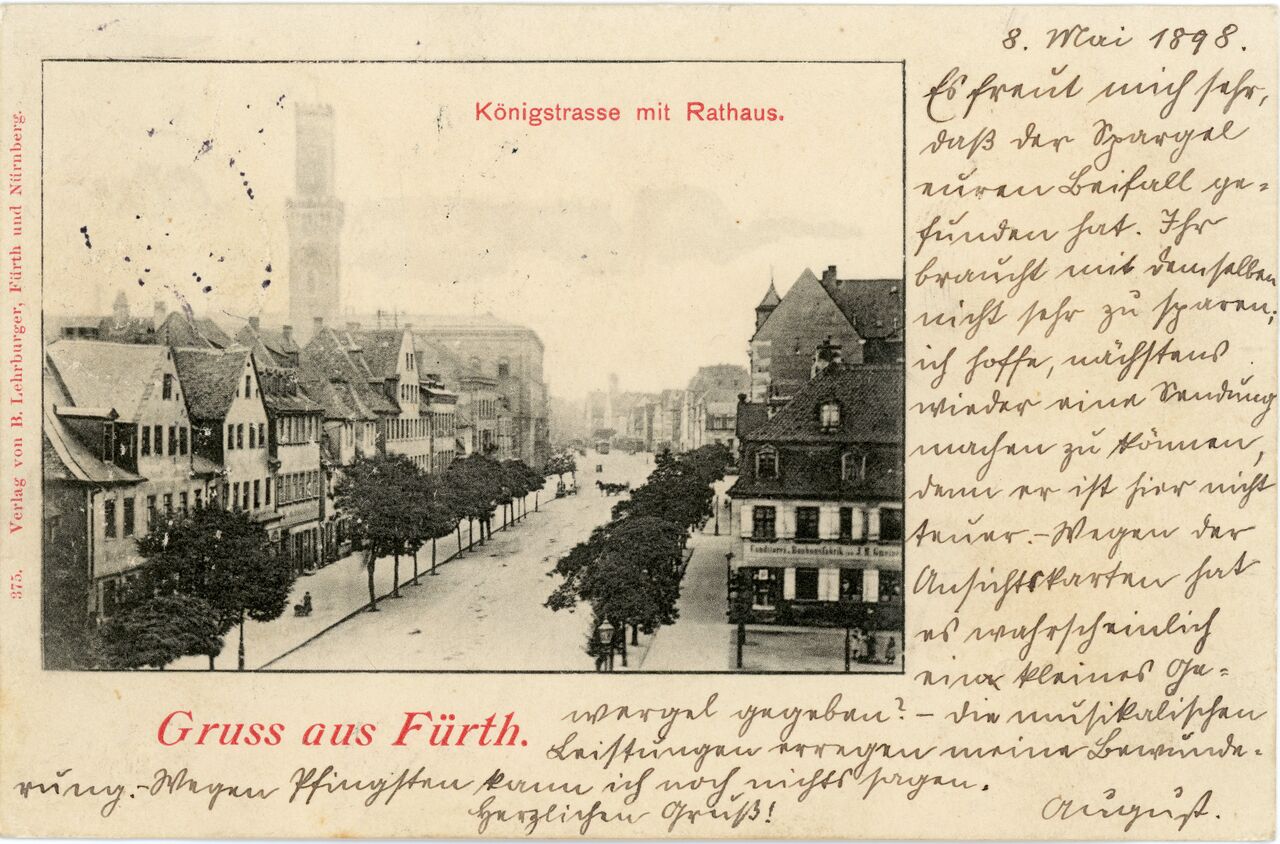 8. Mai 1898.
Es freut mich sehr,
daß der Spargel
euren Beifall ge=
funden hat. Ihr
braucht mit demselben
nicht sehr zu sparen;
ich hoffe, nächstens
wieder eine Sendung
machen zu können,
denn er ist hier nicht
teuer. – Wegen der
Ansichtskarten hat
es wahrscheinlich
ein kleines Ge=
wergel gegeben? – Die musikalischen
Leistungen erregen meine Bewunde=
rung. – Wegen Pfingsten kann ich noch nichts sagen.
Herzlichen Gruß!
August.
Königstrasse mit Rathaus.
Gruss aus Fürth.
375. Verlag von B. Lehrburger, Fürth und Nürnberg.